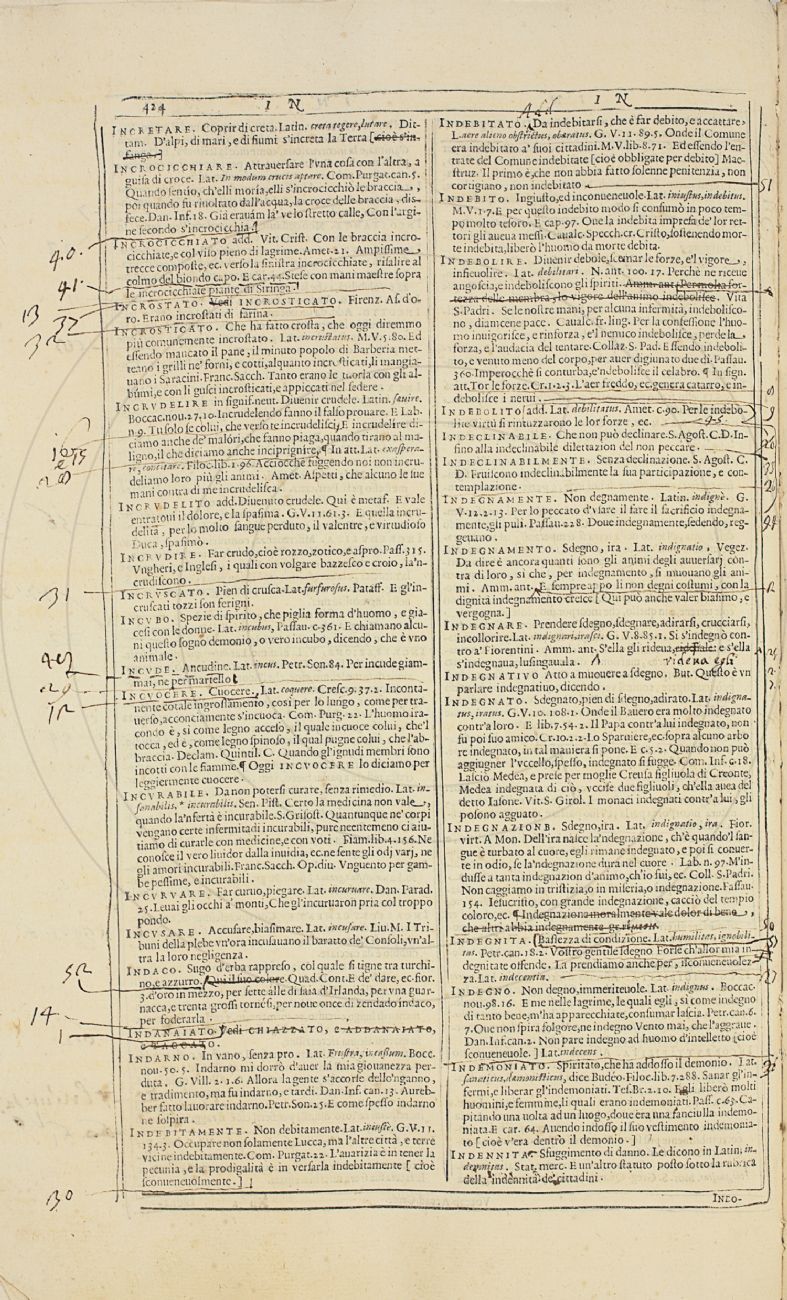 424 I N
INCRETARE. Coprir di creta. Latin. creta tegere, lutare. Dit-
tam. D'alpi, di mari, e di fiumi s'increta la Terra [cioè s'in-
fanga.]
INCROCICCHIARE. Attrauersare l'vna cosa con l'altra, a
guisa di croce. Lat. In modum crucis aptare. Com. Purgat. can. 5.
Quando sentio, ch'elli moria, elli s'incrocicchiò le braccia, e
poi quando fu ritruouato dall'acqua, la croce delle braccia, dis-
fece. Dan. Inf. 18. Già erauàm là' ve lo stretto calle, Con l'argi-
ne secondo s'incrocicchia.
INCROCICCHIATO add. Vit. Crist. Con le braccia incro-
cicchiate, e col viso pieno di lagrime. Amet. 21. Ampissime,
trecce composte, ec. verso la sinistra incrocicchiate, risalire al
colmo del biondo capo. E car. 44. Stese con mani maestre sopra
le incrocicchiate piante di Siringa.
INCROSTATO. Vedi INCROSTICATO. Firenz. As. d'o-
ro. Erano incrostati di farina.
INCROSTICATO. Che ha fatto crosta, che oggi diremmo
più comunemente incrostato. Lat. incrustatus. M. V. 5. 80. Ed
essendo mancato il pane, il minuto popolo di Barberia met-
teano i grilli ne' forni, e cotti, alquanto incrosticati, li mangia-
uano i Saracini. Franc. Sacch. Tanto erano le tuorla con gli al-
bumi, e con li gusci incrosticati, e appiccati nel sedere.
INCRVDELIRE in signif. neut. Diuenir crudele. Latin. sauire.
Boccac. nou. 27. 10. Incrudelendo fanno il falso prouare. E Lab.
n. 9. Tu solo se colui, che verso te incrudelisci, E incrudelire di-
ciamo anche de' malóri, che fanno piaga, quando tirano al ma-
ligno, il che diciamo anche inciprignire. ¶ In att. Lat. exaspera-
re, concitare. Filoc. lib. 1. 96. Acciocchè fuggendo noi non incru-
deliamo loro più gli animi. Amet. Aspetti, che alcuno le sue
mani contra di me incrudelisca.
INCRVDELITO add. Diuenuto crudele. Qui è metaf. E vale
entratoui il dolore, e la spasima. G. V. 11. 61. 3. E quella incru-
delita, per lo molto sangue perduto, il valentre, e virtudioso
Duca, spasimò.
INCRVDIRE. Far crudo, cioè rozzo, zotico, e aspro. Pass. 315.
Vngheri, e Inglesi, i quali con volgare bazzesco e croio, la'n-
crudiscono.
INCRVSCATO. Pien di crusca. Lat. furfurosus. Pataff. E gl'in-
cruscati tozzi son ferigni.
INCVBO. Spezie di spirito, che piglia forma d'huomo, e gia-
cesi con le donne. Lat. incubus, Passau. c. 361. E chiamano alcu-
ni questo sogno demonio, o vero incubo, dicendo, che è vno
animale.
INCVDE. Ancudine. Lat. incus. Petr. Son. 84. Per incude giam-
mai, ne per martello
INCVOCERE. Cuocere. Lat. coquere. Cresc. 9. 37. 2. Inconta-
nente cotale ingrossamento, così per lo lungo, come per tra-
uerso, acconciamente s'incuoca. Com. Purg. 22. L'huomo ira-
condo è, si come legno acceso, il quale incuoce colui, che'l
tocca, ed è, come legno spinoso, il qual pugne colui, che l'ab-
braccia. Declam. Quintil. C. Quando gl'ignudi membri sono
incotti con le fiamme. ¶ Oggi INCVOCERE lo diciamo per
leggiermente cuocere.
INCVRABILE. Da non potersi curare, senza rimedio. Lat. in-
sanabilis, * incurabilis. Sen. Pist. Certo la medicina non vale,
quando la 'nferta è incurabile. S. Grisost. Quantunque ne' corpi
vengano certe infermitadi incurabili, pure neentemeno ci aiu-
tiamo di curarle con medicine, e con voti. Fiam. lib. 4. 156. Ne
conosce il vero liuidor dalla inuidia, ec. ne sente gli odj varj, ne
gli amori incurabili. Franc. Sacch. Op. diu. Vnguento per gam-
be pessime, e incurabili.
INCVRVARE. Far curuo, piegare. Lat. incuruare. Dan. Parad.
25. Leuai gli occhi a' monti, Che gl'incuruaron pria col troppo
pondo.
INCVSARE. Accusare, biasimare. Lat. incusare. Liu. M. I Tri-
buni della plebe vn'ora incusauano il baratto de' Consoli, vn'al-
tra la loro negligenza.
INDACO. Sugo d'erba rappreso, col quale si tigne tra turchi-
no, e azzurro. Qui il suo colore. Quad. Cont. E de' dare, ec. fior.
3. d'oro in mezzo, per sette alle di saia d'Irlanda, per vna guar-
nacca, e trenta grossi tornesi, per noue once di zendado indaco,
per foderarla.
INDANAIATO. Vedi CHIAZZATO, e ADDANAIATO,
INDARNO. In vano, senza pro. Lat. Frustra, incassum. Bocc.
nou. 50. 5. Indarno mi dorrò d'auer la mia giouanezza per-
duta. G. Vill. 2. 1. 6. Allora la gente s'accorse dello'nganno,
e tradimento, ma fu indarno, e tardi. Dan. Inf. can. 13. Aureb-
ber fatto lauorare indarno. Petr. Son. 25. E come spesso indarno
ne sospira.
INDEBITAMENTE. Non debitamente. Lat. iniuste. G. V. 11.
134. 3. Occupare non solamente Lucca, ma l'altre città, e terre
vicine indebitamente. Com. Purgat. 22. L'auarizia è in tener la
pecunia, e la prodigalità è in versarla indebitamente [ cioè
sconueneuolmente. ]
40
41
13
37
32
31
42
20
12
52
14
1
30
I N
Add
INDEBITATO. Da indebitarsi, che è far debito, e accattare.
L. aere alieno obstrictus, obaratus. G. V. 11. 89. 5. Onde il Comune
era indebitato a' suoi cittadini. M. V. lib. 8. 71. Ed essendo l'en-
trate del Comune indebitate [cioè obbligate per debito] Mae-
struz. Il primo è, che non abbia fatto solenne penitenzia, non
cortigiano, non indebitato
INDEBITO. Ingiusto, ed inconueneuole. Lat. iniustus, indebitus.
M. V. 1. 7. E per questo indebito modo si consumò in poco tem-
po molto tesoro. E cap. 97. One la indebita impresa de' lor ret-
tori gli auea messi. Caualc. Specch. cr. Cristo, sostenendo mor-
te indebita, liberò l'huomo da morte debita.
INDEBOLIRE. Diuenir debole, scemar le forze, e'l vigore,
infieuolire. Lat. debilitari. N. ant. 100. 17. Perchè ne riceue
angoscia, e indeboliscono gli spiriti. Amm. ant. Per molta for-
tezza delle membra, lo vigore dell'animo indebolisce. Vita
S. Padri. Se le nostre mani, per alcuna infermità, indebolisco-
no, diamcene pace. Caualc. fr. ling. Per la confessione l'huo-
mo inuigorisce, e rinforza, e'l nemico indebolisce, perde la
forza, e l'audacia del tentare. Collaz. S. Pad. Essendo indeboli-
to, e venuto meno del corpo, per auer digiunato due dì. Passau.
360. Imperocchè si conturba, e'ndebolisce il celabro. ¶ In sign.
att. Tor le forze. Cr. 1. 2. 3. L'aer freddo, ec. genera catarro, e in-
debolisce i nerui.
INDEBOLITO add. Lat. debilitatus. Amet. c. 90. Per le indebo-
lite virtù si rintuzzarono le lor forze, ec. 95.
INDECLINABILE. Che non può declinare. S. Agost. C. D. In-
sino alla indeclinabile dilettazion del non peccare.
INDECLINABILMENTE. Senza declinazione. S. Agost. C.
D. Fruiscono indeclinabilmente la sua participazione, e con-
templazione.
INDEGNAMENTE. Non degnamente. Latin. indignè. G.
V. 12. 2. 13. Per lo peccato d'vsare il fare il sacrificio indegna-
mente, gli punì. Passau. 228. Doue indegnamente, sedendo, reg-
geuano.
INDEGNAMENTO. Sdegno, ira. Lat. indignatio. Vegez.
Da dire è ancora quanti sono gli animi degli auuersarj con-
tra di loro, si che, per indegnamento, si muouano gli ani-
mi. Amm. ant. E sempre appo li non degni costumi, con la
dignità indegnamento cresce [ Qui può anche valer biasimo, e
vergogna. ]
INDEGNARE. Prendere sdegno, sdegnare, adirarsi, crucciarsi,
incollorire. Lat. indignari, irasci. G. V. 8. 85. 1. Si s'indegnò con-
tro a' Fiorentini. Amm. ant. S'ella gli ridea, e s'ella
s'indegnaua, lusingauala. Λ ridena egli
INDEGNATIVO Atto a muouere a sdegno. But. Questo è vn
parlare indegnatiuo, dicendo.
INDEGNATO. Sdegnato, pien di sdegno, adirato. Lat. indigna-
tus, iratus. G. V. 10. 108. 1. Onde il Bauero era molto indegnato
contr'a loro. E lib. 7. 54. 2. Il Papa contr'a lui indegnato, non
fu poi suo amico. Cr. 10. 2. 2. Lo Sparuiere, ec. sopra alcuno arbo
re indegnato, in tal maniera si pone. E c. 5. 2. Quando non può
aggiugner l'vccello, spesso, indegnato si fugge. Com. Inf. c. 18.
Lasciò Medea, e prese per moglie Creusa figliuola di Creonte,
Medea indegnata di ciò, vccise due figliuoli, ch'ella auea del
detto Iasone. Vit. S. Girol. I monaci indegnati contr'a lui, gli
posono agguato.
INDEGNAZIONE. Sdegno, ira. Lat. indignatio, ira. Fior.
virt. A Mon. Dell'ira nasce la'ndegnazione, ch'è quando'l san-
gue è turbato al cuore, egli rimane indegnato, e poi si conuer-
te in odio, se la'ndegnazione dura nel cuore. Lab. n. 97. M'in-
dusse a tanta indegnazion d'animo, ch'io fui, ec. Coll. S. Padri.
Non caggiamo in tristizia, o in miseria, o indegnazione. Passau.
154. Iesucristo, con grande indegnazione, cacciò del tempio
coloro, ec. ¶ Indegnazione moralmente vale dolor di bene,
che altri abbia indegnamente
INDEGNITA. [Bassezza di condizione. Lat. humilitas, ignobili-
tas. Petr. can. 18. 2. Vostro gentile sdegno Forse ch'allor mia in
degnitate offende. La prendiamo anche per, isconueneuolez
za. Lat. indecentia.
INDEGNO. Non degno, immeriteuole. Lat. indignus. Boccac.
nou. 98. 16. E me nelle lagrime, le quali egli, si come indegno
di tanto bene, m'ha apparecchiate, consumar lascia. Petr. can. 6.
7. Oue non spira folgore, ne indegno Vento mai, che l'aggraue.
Dan. Inf. can. 2. Non pare indegno ad huomo d'intelletto [cioè
sconueneuole. ] Lat. indecens.
INDEMONIATO. Spiritato, che ha addosso il demonio. Lat.
fanaticus, damoniacus, dice Budéo. Filoc. lib. 7. 288. Sanar gl'in-
fermi, e liberar gl'indemoniati. Tes. Br. 2. 10. Egli liberò molti
huomini, e femmine, li quali erano indemoniati. Pass. c. 63. Ca-
pitando una uolta ad un luogo, doue era una fanciulla indemo-
niata. E car. 64. Auendo indosso il suo vestimento indemonia-
to [cioè v'era dentro il demonio. ]
INDENNITA. Sfuggimento di danno. Le dicono in Latin. in-
demnitas. Stat. merc. E un'altro statuto posto sotto la rubrica
della indennità de' cittadini.
INDO-
51